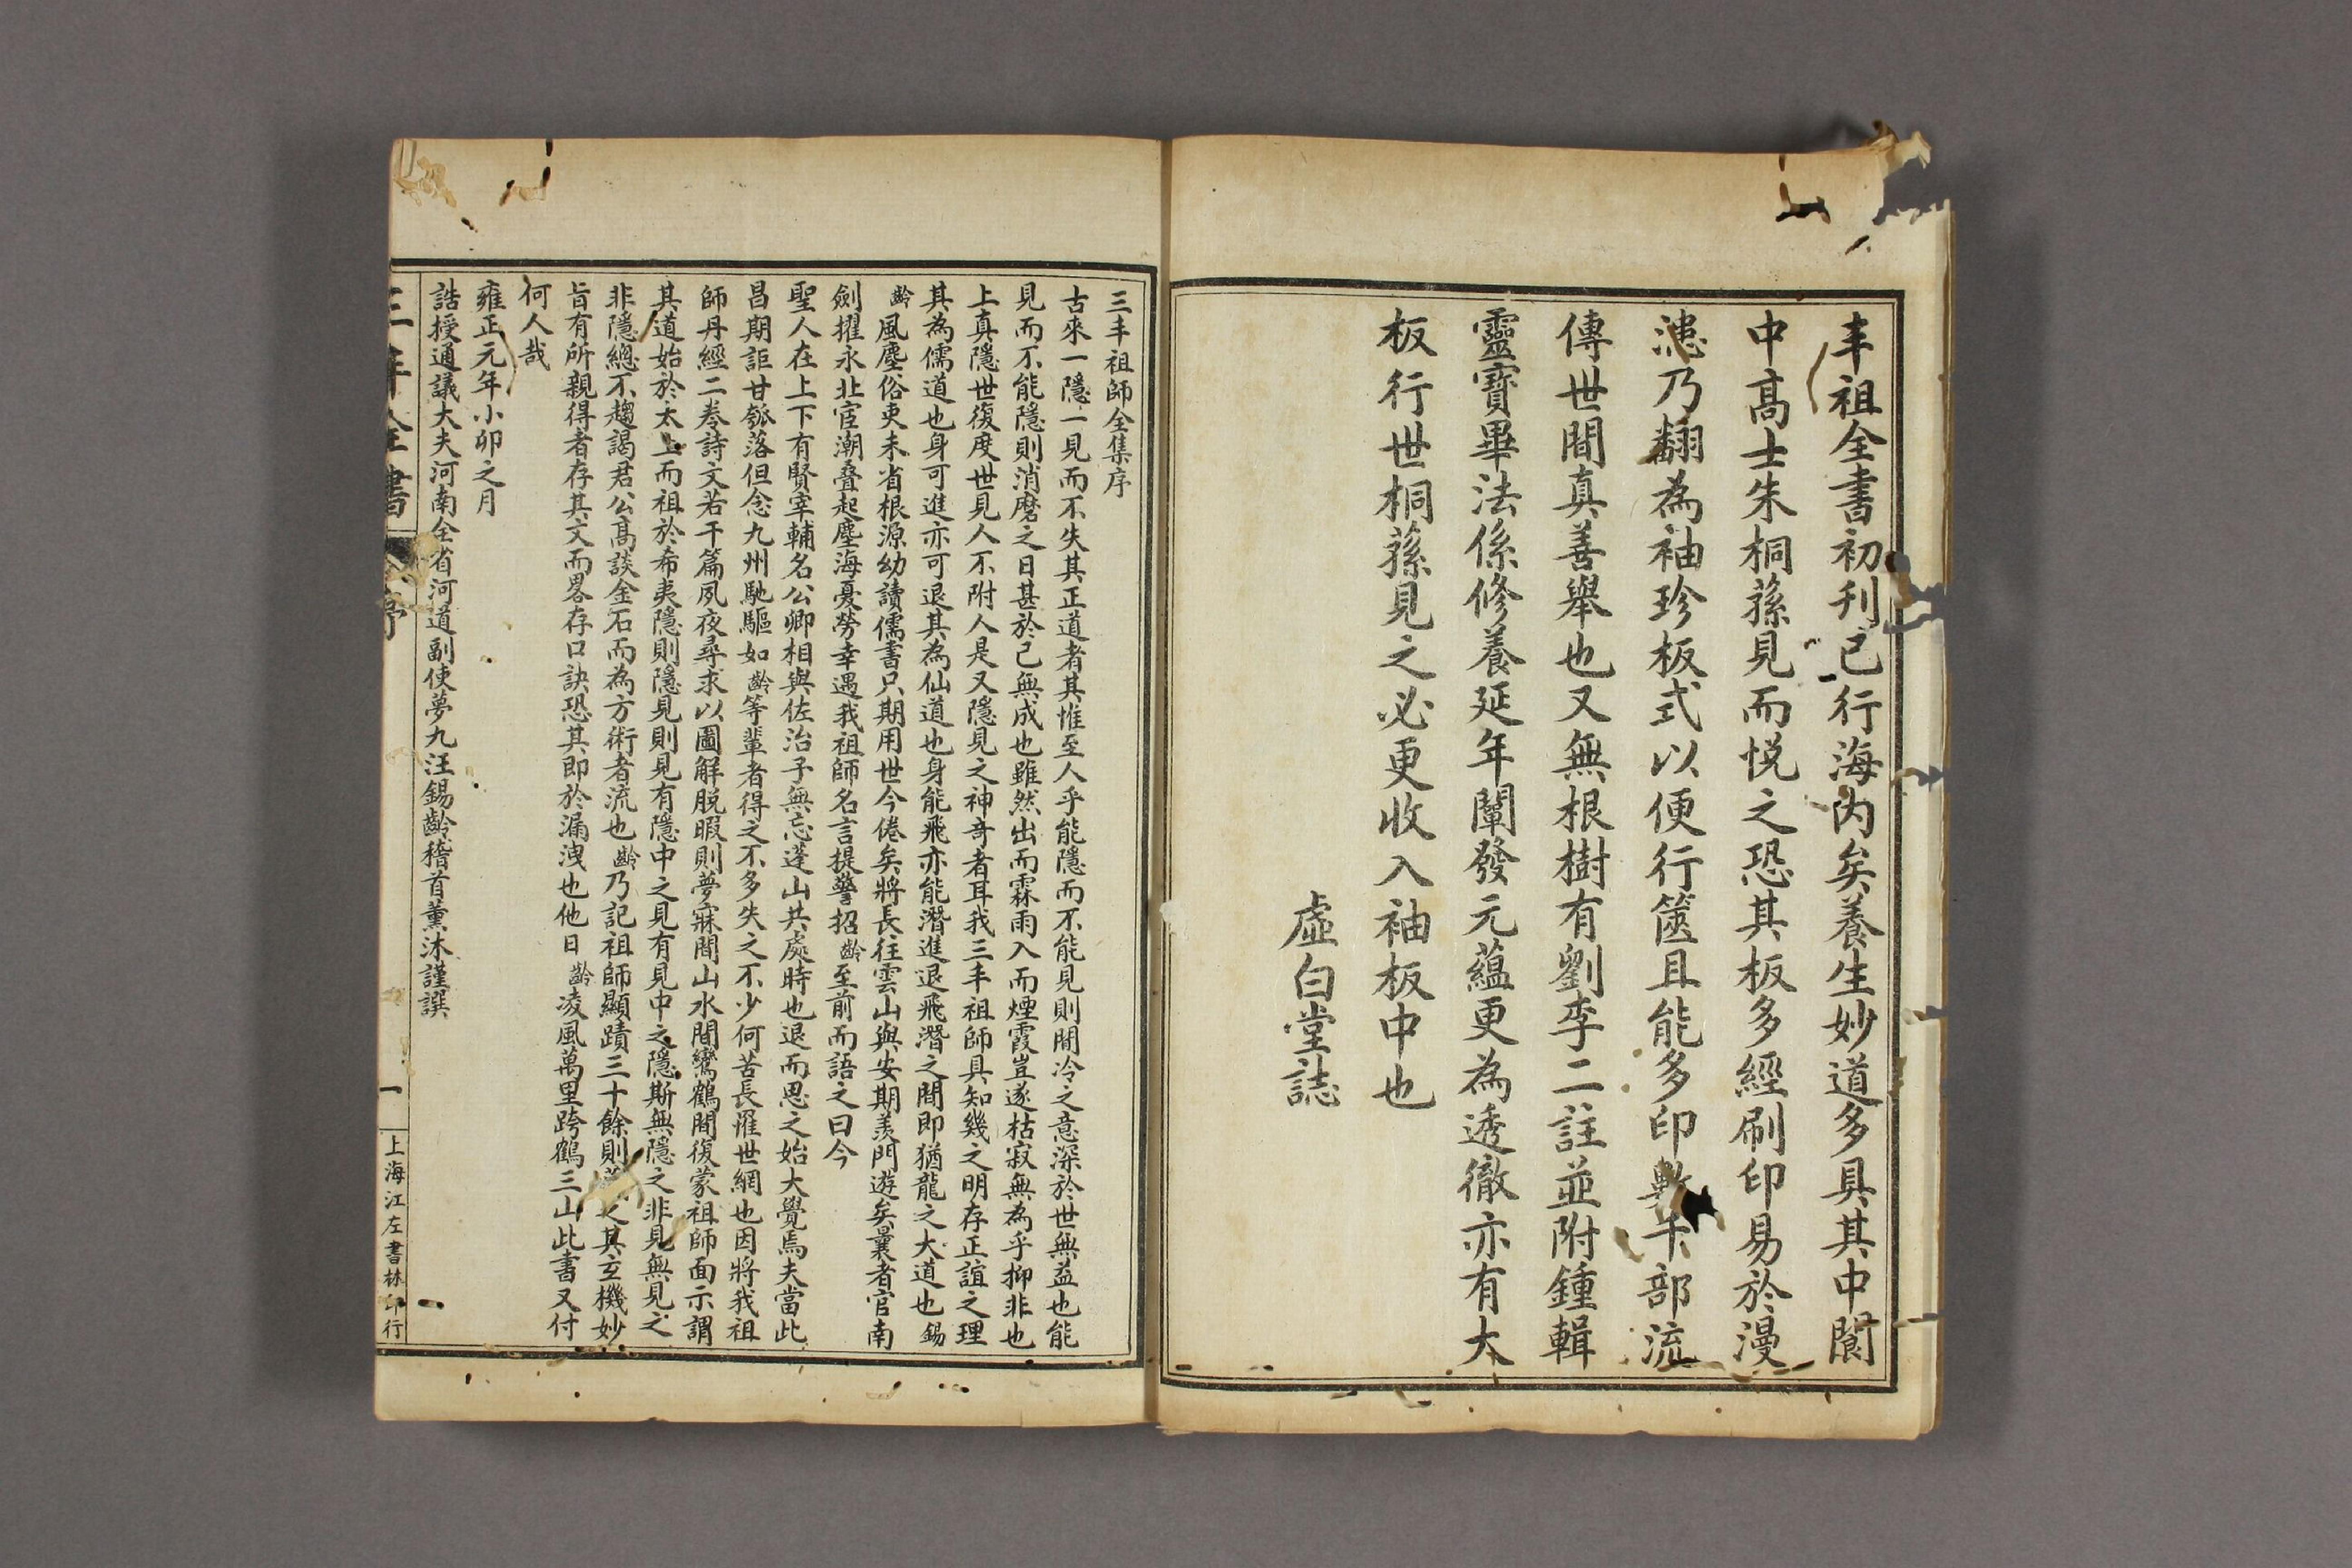 丰祖全書初刊已行海内矣養生妙道多具其中閬
中高士朱桐蓀見而悦之恐其板多經刷印易於漫
漶乃翻為袖珍板式以便行篋且能多印數千部流
傳世間真善舉也又無根樹有劉李二註並附鍾輯
靈寳畢法係修養延年闡發元蘊更為透徹亦有大
板行世桐蓀見之必更收入袖板中也
虛白堂誌
三丰祖師全集序
古來一隱一見而不失其正道者其惟至人乎能隱而不能見則閒冷之意深於世無益也能
見而不能隱則消磨之日甚於己無成也雖然出而霖雨入而煙霞豈遂枯寂無為乎抑非也
上真隱世復度世見人不附人是又隱見之神竒者耳我三丰祖師具知幾之明存正誼之理
其為儒道也身可進亦可退其為仙道也身能飛亦能潛進退飛潛之間即猶龍之大道也錫
齡風塵俗吏未省根源幼讀儒書只期用世今倦矣將長往雲山與安期羨門遊矣曩者官南
劍擢永北宦潮疊起塵海憂勞幸遇我祖師名言提警招齡至前而語之曰今
聖人在上下有賢宰輔名公卿相與佐治子無忘蓬山共處時也退而思之始大覺焉夫當此
昌期詎甘瓠落但念九州馳驅如齡等輩者得之不多失之不少何苦長罹世網也因將我祖
師丹經二卷詩文若干篇夙夜尋求以圖解脱暇則夢寐間山水間鸞鶴間復蒙祖師面示謂
其道始於太上而祖於希夷隱則隱見則見有隱中之見有見中之隱斯無隱之非見無見之
非隱總不趨謁君公高談金石而為方術者流也齡乃記祖師顯蹟三十餘則之其玄機妙
旨有所親得者存其文而畧存口訣恐其即於漏洩也他日齡凌風萬里跨鶴三山此書又付
何人哉
雍正元年小卯之月
誥授通議大夫河南全省河道副使夢九汪錫齡稽首薰沐謹譔
三丰全書
序
一
上海江左書林印行